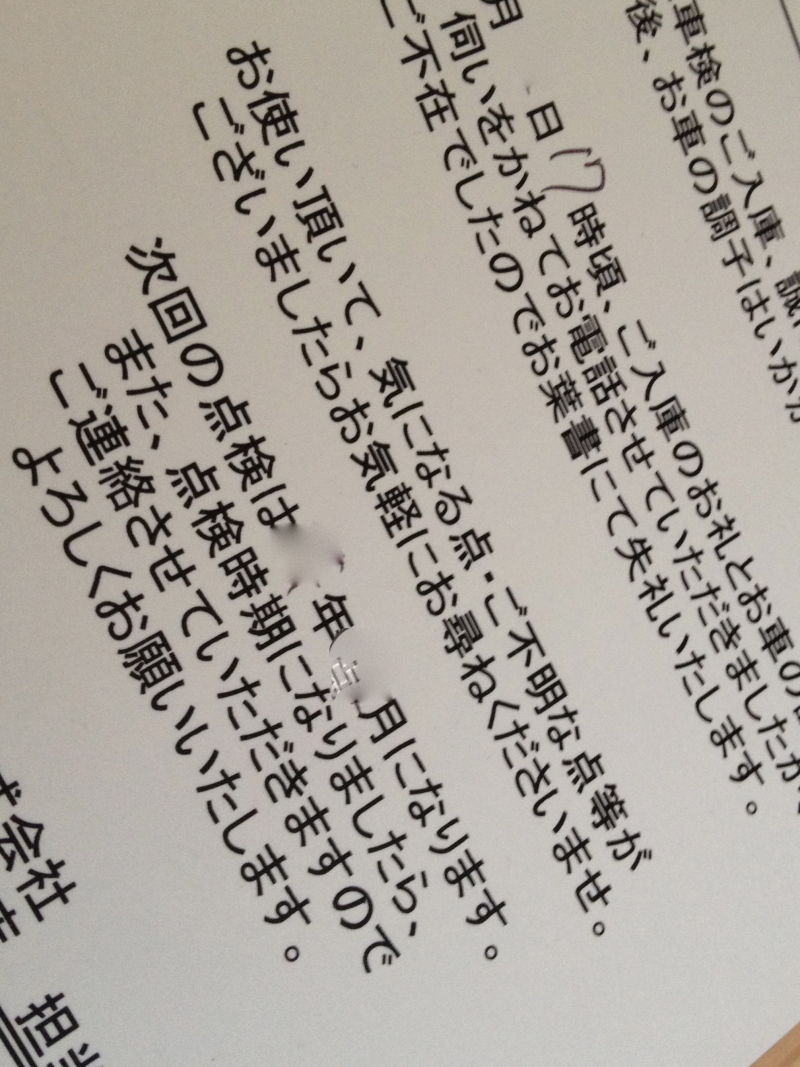 車検のご入庫、誠に
後、お車の調子はいかが
月 日17時頃、ご入庫のお礼とお車の
伺いをかねてお電話させていただきましたが
ご不在でしたのでお葉書にて失礼いたします。
お使い頂いて、気になる点・ご不明な点等が
ございましたらお気軽にお尋ねくださいませ。
次回の点検は 年 月になります。
また、点検時期になりましたら、
ご連絡させていただきますので
よろしくお願いいたします。
会社
担当